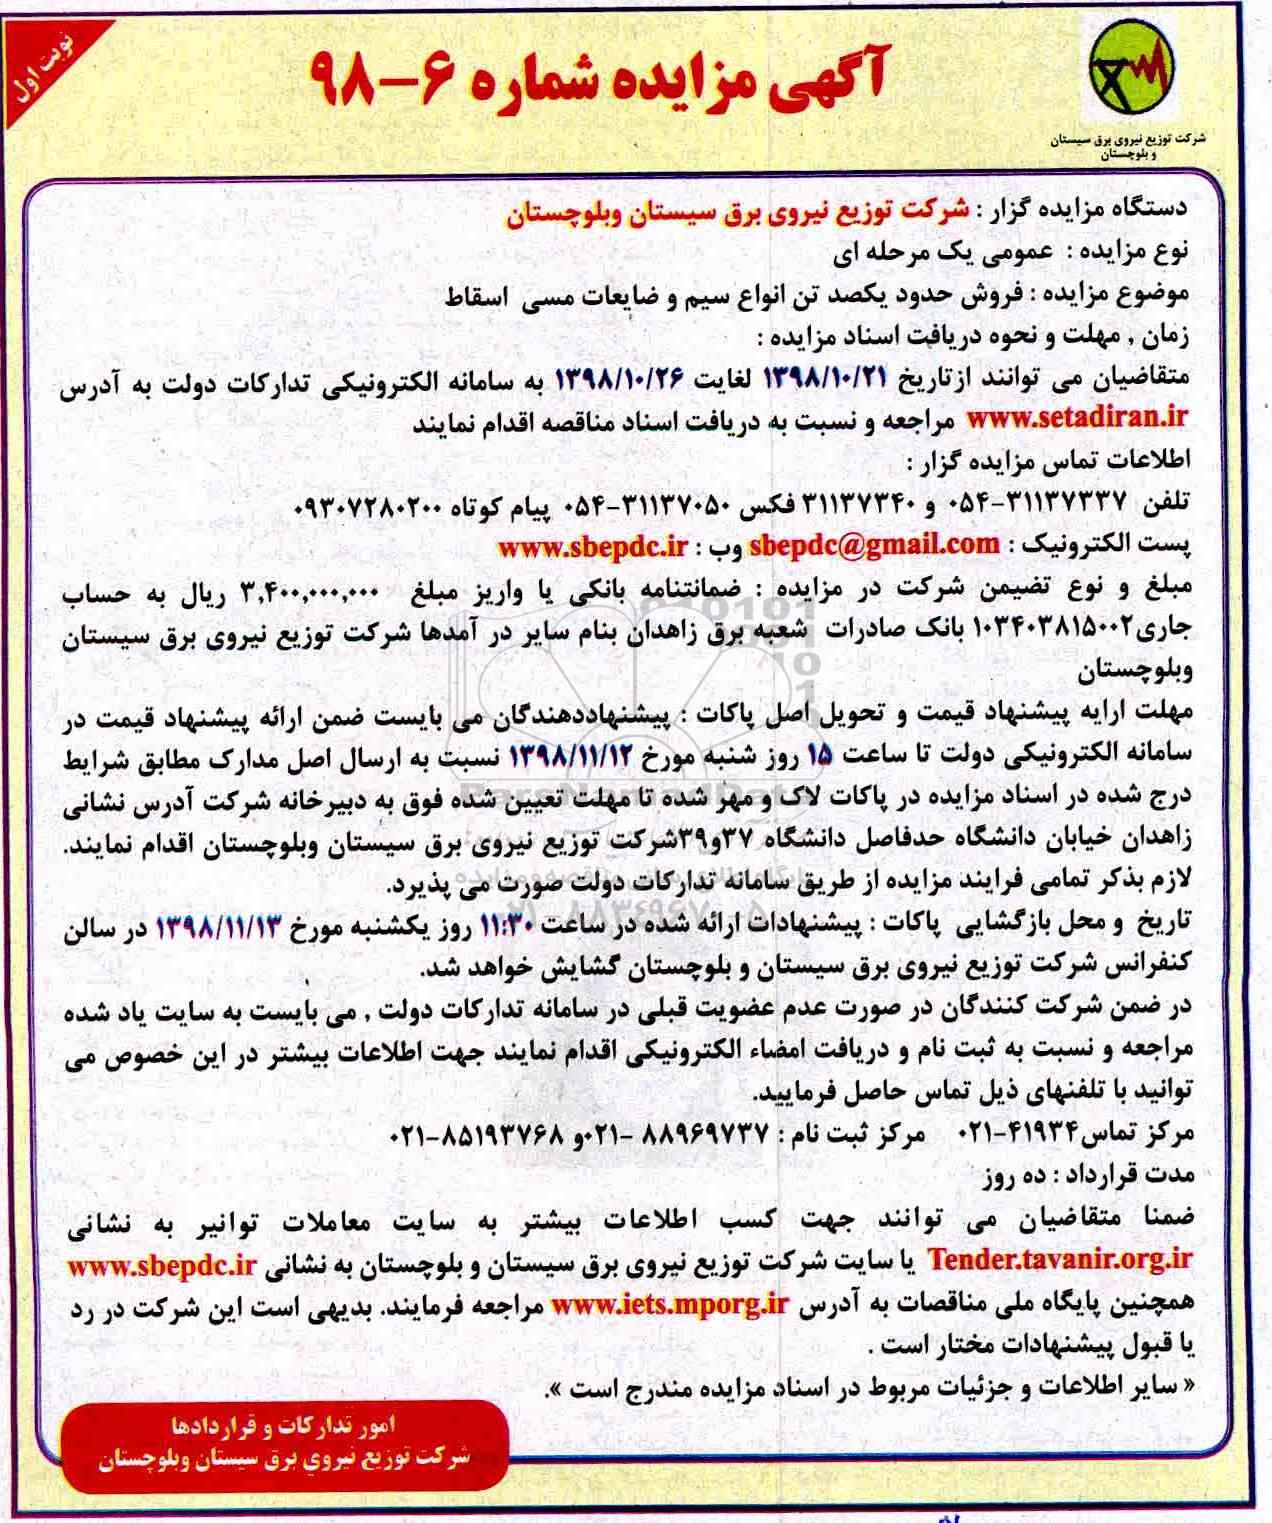 نوبت اول
آگهی مزایده شماره ۶-۹۸
شرکت توزیع نیروی برق سیستان
و بلوچستان
دستگاه مزایده گزار : شرکت توزیع نیروی برق سیستان وبلوچستان
نوع مزایده : عمومی یک مرحله ای
موضوع مزایده : فروش حدود یکصد تن انواع سیم و ضایعات مسی اسقاط
زمان , مهلت و نحوه دریافت اسناد مزایده :
متقاضیان می توانند ازتاریخ ۱۳۹۸/۱۰/۲۱ لغایت ۱۳۹۸/۱۰/۲۶ به سامانه الکترونیکی تدارکات دولت به آدرس
www.setadiran.ir مراجعه و نسبت به دریافت اسناد مناقصه اقدام نمایند
اطلاعات تماس مزایده گزار :
تلفن ۳۱۱۳۷۳۳۷-۰۵۴ و ۳۱۱۳۷۳۴۰ فکس ۳۱۱۳۷۰۵۰-۰۵۴ پیام کوتاه ۰۹۳۰۷۲۸۰۲۰۰
پست الکترونیک : sbepdc@gmail.com وب : www.sbepdc.ir
مبلغ و نوع تضیمن شرکت در مزایده : ضمانتنامه بانکی یا واریز مبلغ ۳,۴۰۰,۰۰۰,۰۰۰ ریال به حساب
جاری۱۰۳۴۰۳۸۱۵۰۰۲ بانک صادرات شعبه برق زاهدان بنام سایر در آمدها شرکت توزیع نیروی برق سیستان
وبلوچستان
مهلت ارایه پیشنهاد قیمت و تحویل اصل پاکات : پیشنهاددهندگان می بایست ضمن ارائه پیشنهاد قیمت در
سامانه الکترونیکی دولت تا ساعت ۱۵ روز شنبه مورخ ۱۳۹۸/۱۱/۱۲ نسبت به ارسال اصل مدارک مطابق شرایط
درج شده در اسناد مزایده در پاکات لاک و مهر شده تا مهلت تعیین شده فوق به دبیرخانه شرکت آدرس نشانی
زاهدان خیابان دانشگاه حدفاصل دانشگاه ۳۷و۳۹شرکت توزیع نیروی برق سیستان وبلوچستان اقدام نمایند.
لازم بذکر تمامی فرایند مزایده از طریق سامانه تدارکات دولت صورت می پذیرد.
تاریخ و محل بازگشایی پاکات : پیشنهادات ارائه شده در ساعت ۱۱:۳۰ روز یکشنبه مورخ ۱۳۹۸/۱۱/۱۳ در سالن
کنفرانس شرکت توزیع نیروی برق سیستان و بلوچستان گشایش خواهد شد.
در ضمن شرکت کنندگان در صورت عدم عضویت قبلی در سامانه تدارکات دولت , می بایست به سایت یاد شده
مراجعه و نسبت به ثبت نام و دریافت امضاء الکترونیکی اقدام نمایند جهت اطلاعات بیشتر در این خصوص می
توانید با تلفنهای ذیل تماس حاصل فرمایید.
مرکز تماس۴۱۹۳۴-۰۲۱ مرکز ثبت نام : ۸۸۹۶۹۷۳۷ -۰۲۱و ۸۵۱۹۳۷۶۸-۰۲۱
مدت قرارداد : ده روز
ضمنا متقاضیان می توانند جهت کسب اطلاعات بیشتر به سایت معاملات توانیر به نشانی
Tender.tavanir.org.ir یا سایت شرکت توزیع نیروی برق سیستان و بلوچستان به نشانی www.sbepdc.ir
همچنین پایگاه ملی مناقصات به آدرس www.iets.mporg.ir مراجعه فرمایند. بدیهی است این شرکت در رد
یا قبول پیشنهادات مختار است .
« سایر اطلاعات و جزئیات مربوط در اسناد مزایده مندرج است ».
امور تدارکات و قراردادها
شرکت توزیع نیروي برق سیستان وبلوچستان